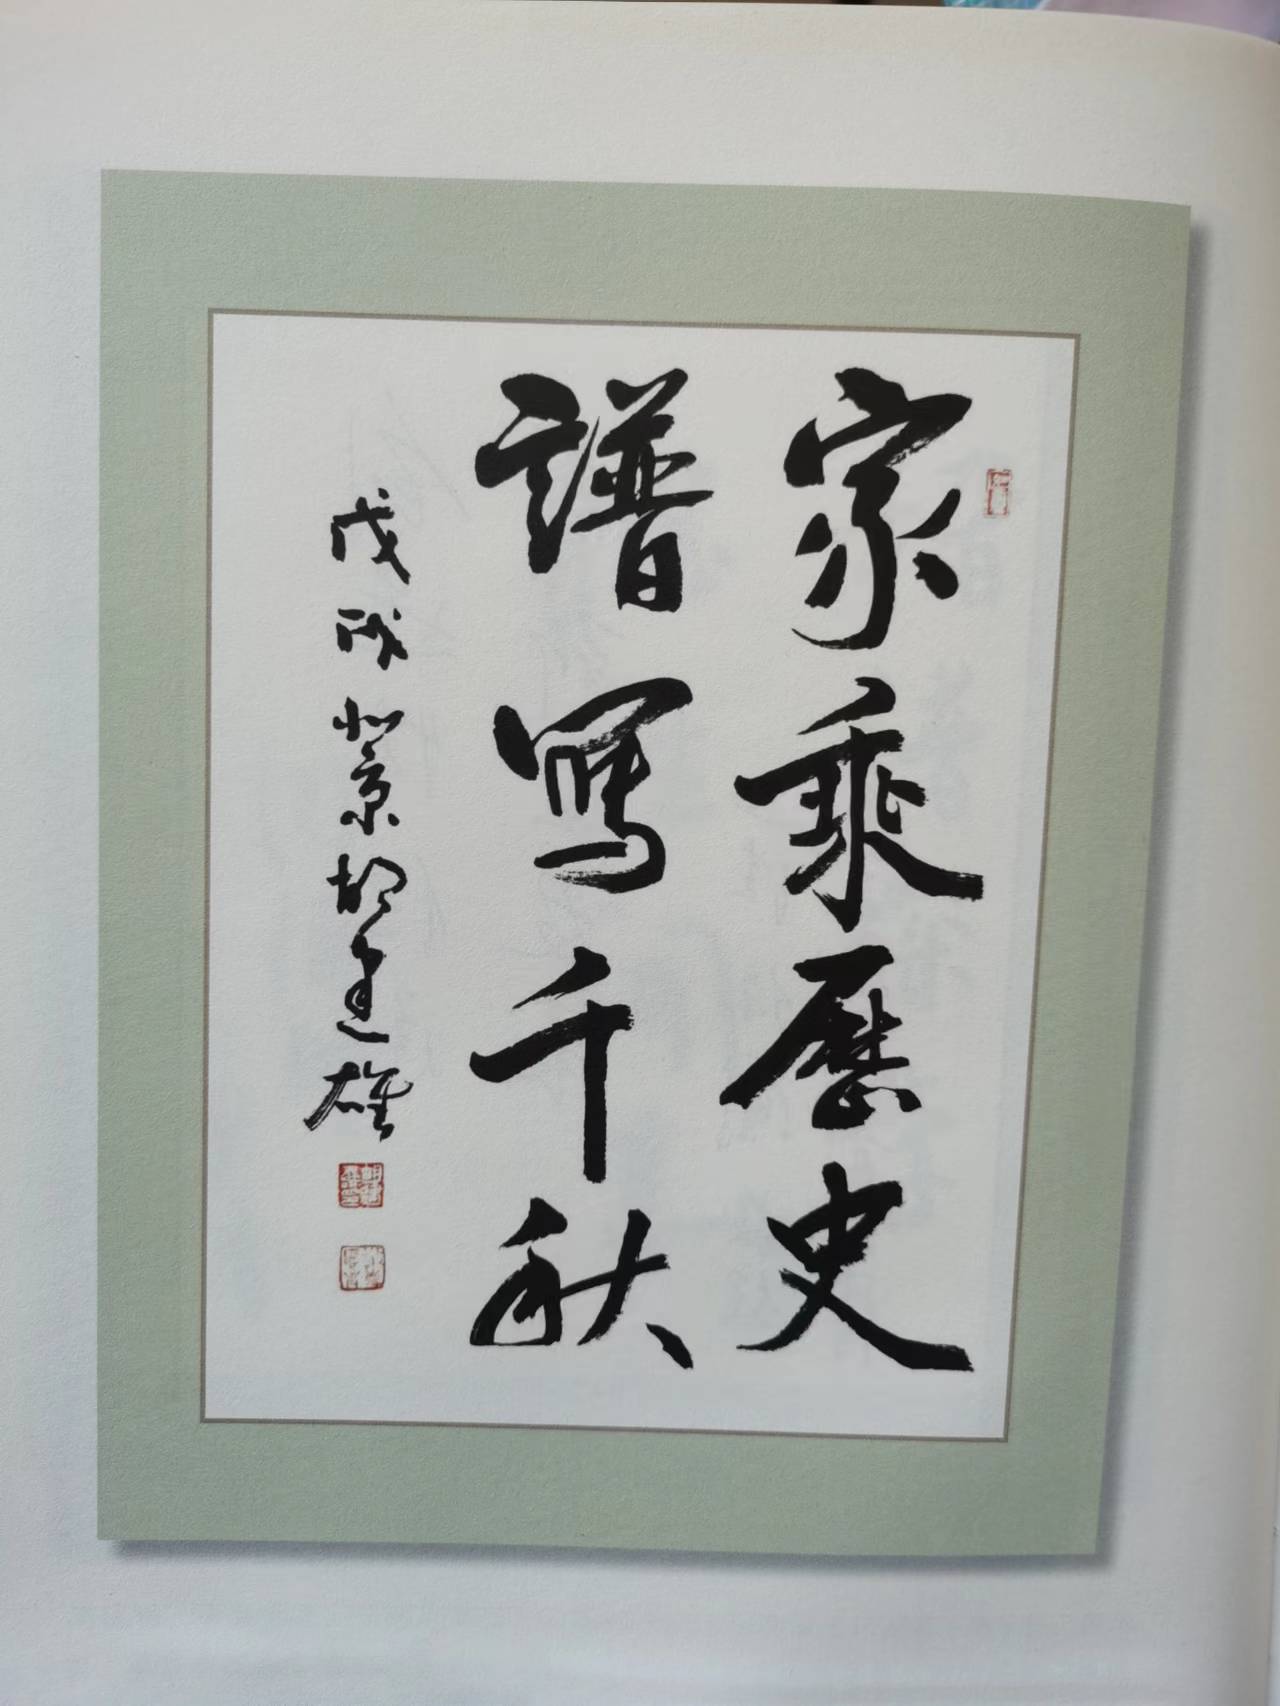 家乘歷史
譜寫千秋
戊戌北京胡建雄